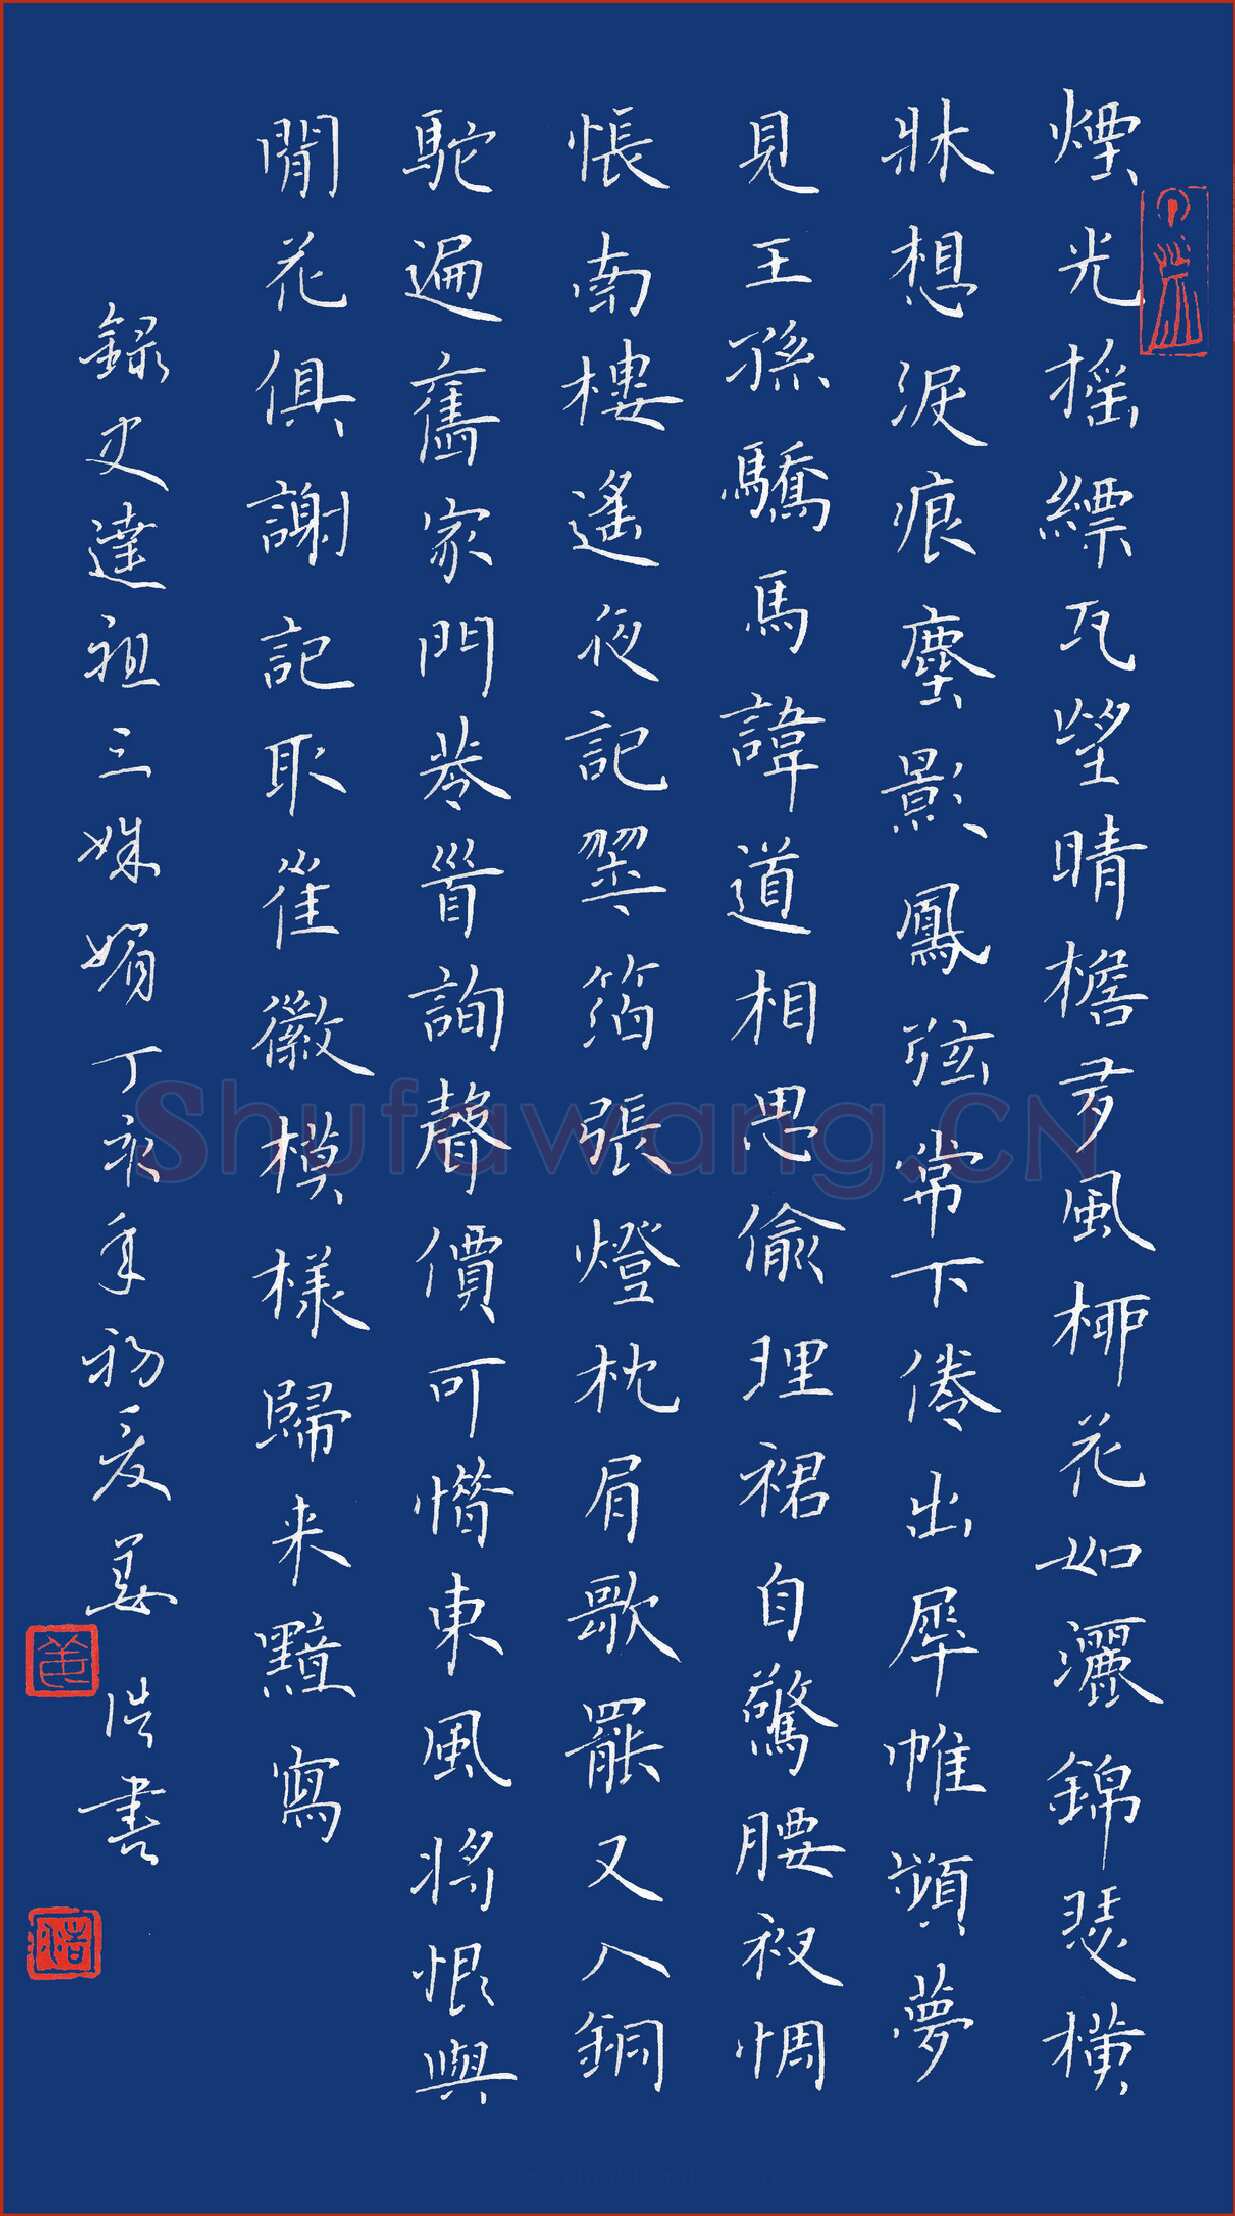 煙光摇縹瓦望晴檐多風柳花如灑錦瑟横
牀想淚痕塵影鳳弦常下倦出犀帷頻夢
見王孫驕馬諱道相思偷理裙自驚腰衩惆
悵南樓遙夜記翠箔張燈枕肩歌罷又入銅
駝遍舊家門巷首詢聲價可惜東風將恨與
閒花俱謝記取崔徽模樣歸来黯寫
録史達祖三姝媚丁亥年初夏姜浩書
Shufawang.CN